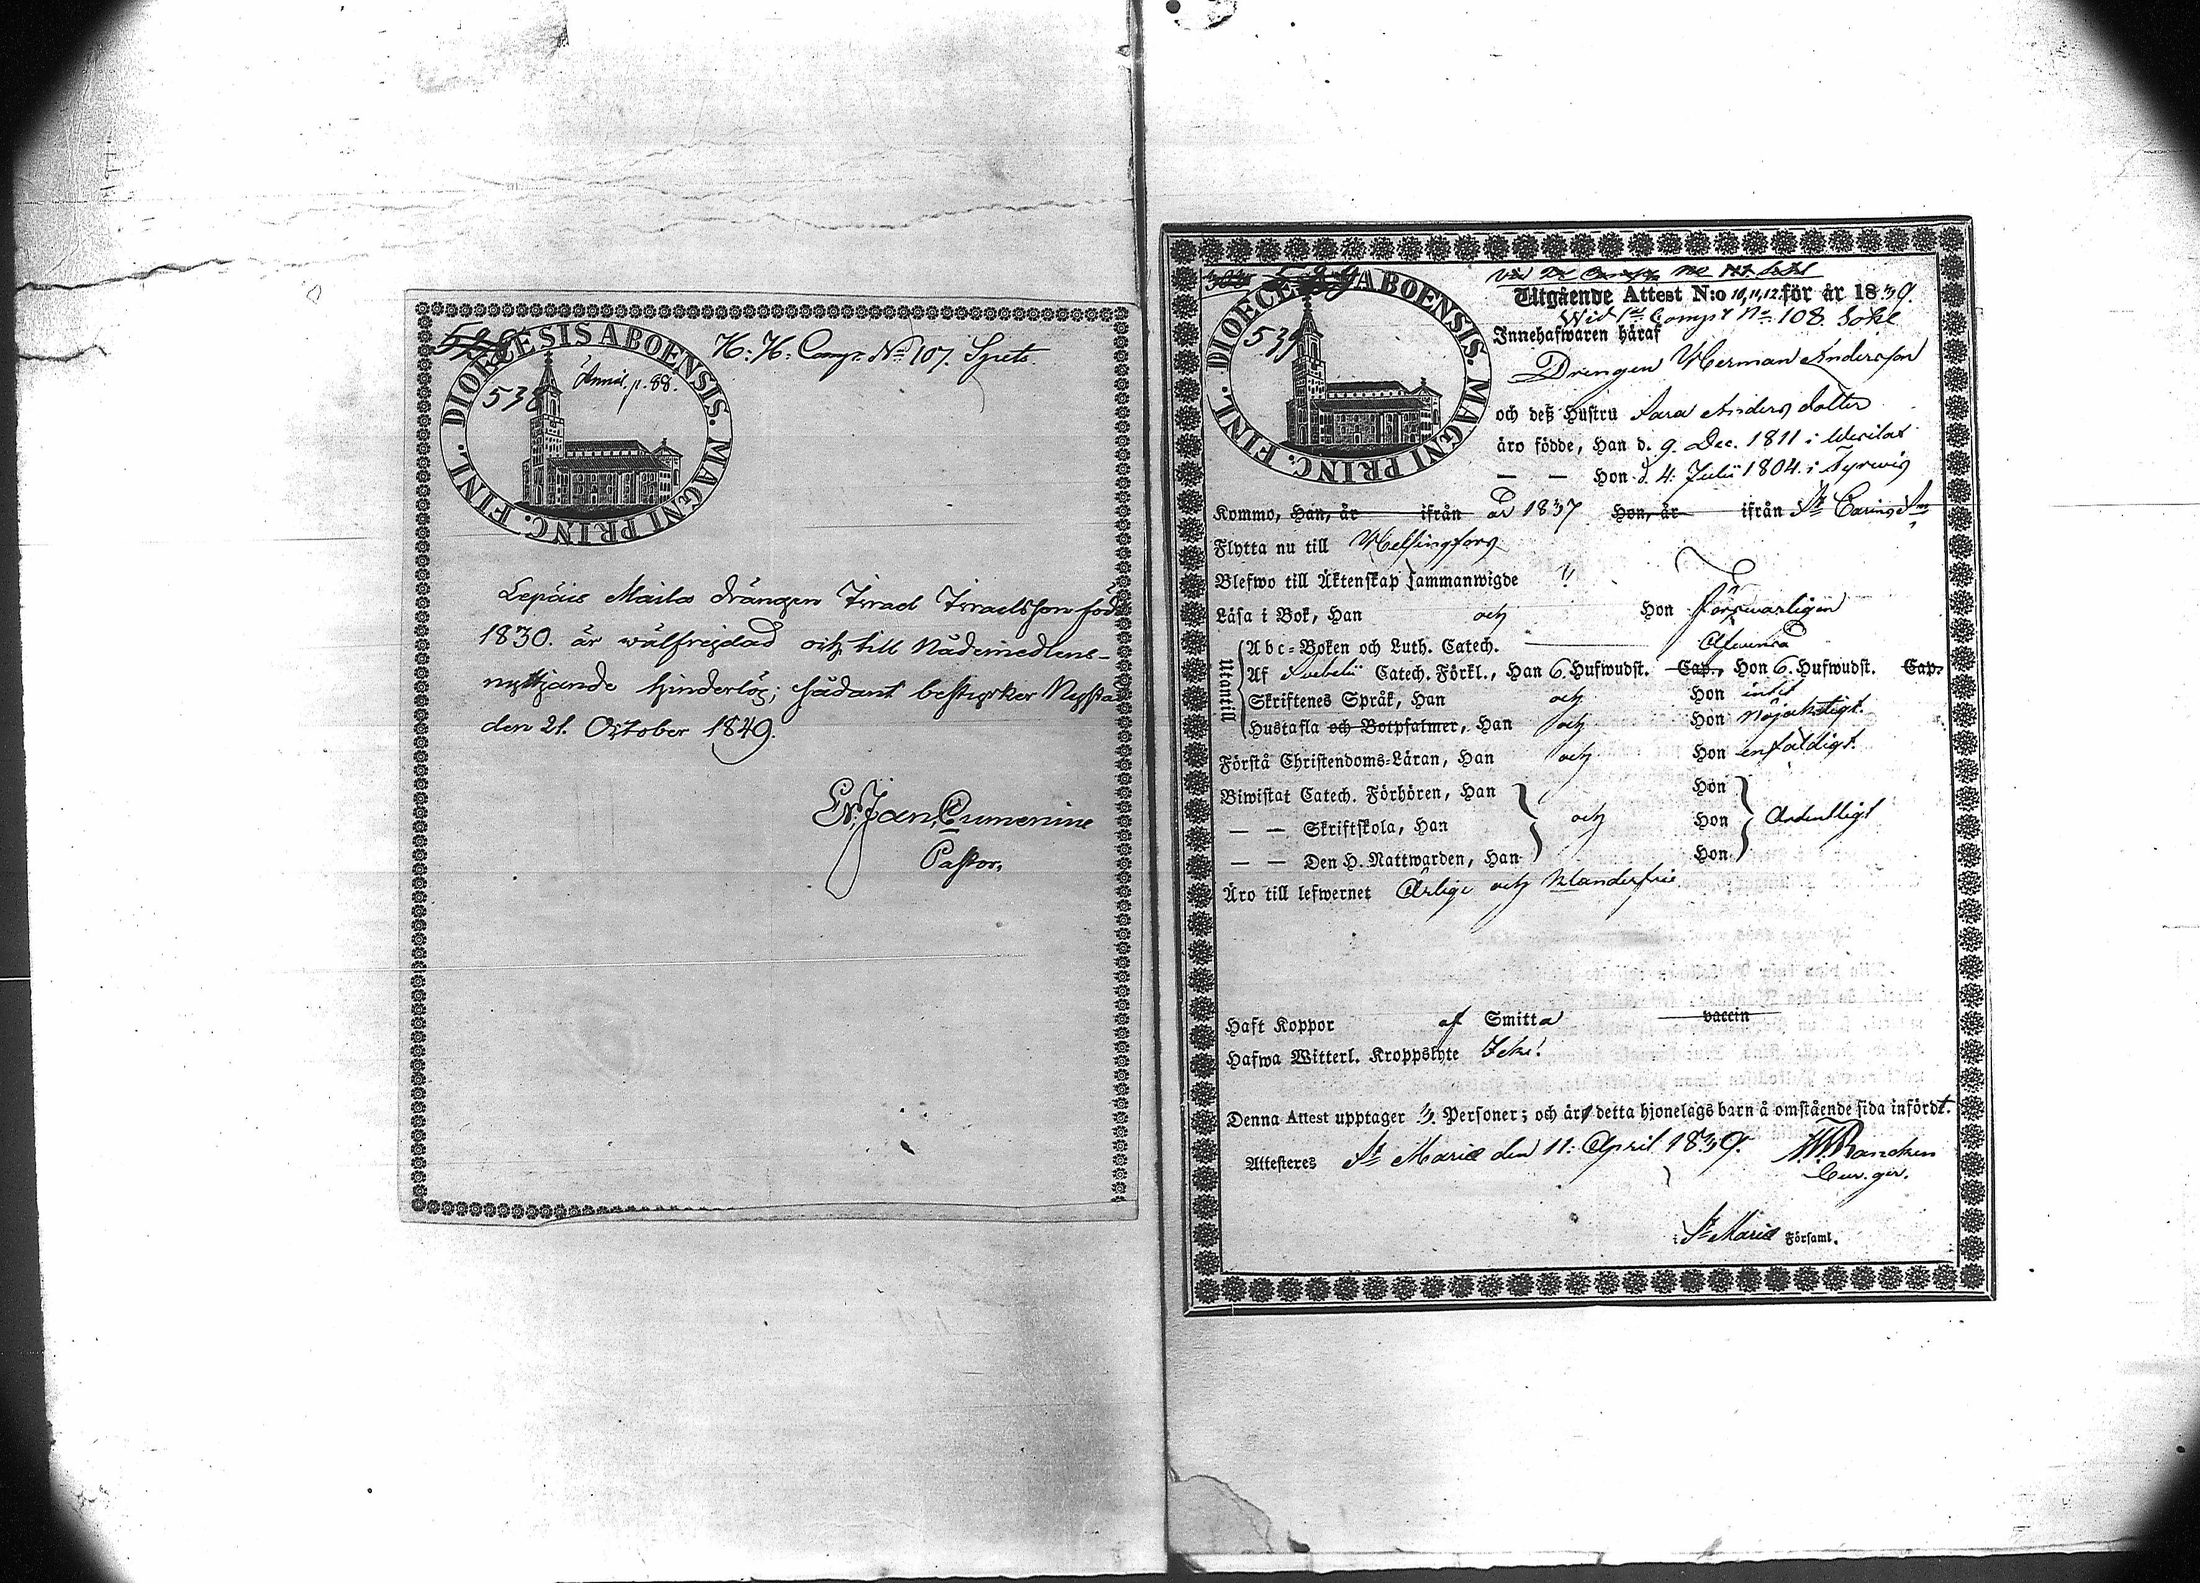 538
DIOECESIS ABOENSIS. MAGNI PRINC. FINL.
Annil. p. 88.
H: H: Comp. No 107. Spets
Lepäis Maila drängen Israel Israelsson född
1830. är wälfrejdad och till Nådemedlens-
nyttjande hinderlös; sådant bestyrker Nystad
den 21. October 1849.
Jan Cumenius
Pastor.
539
DIOECESIS ABOENSIS. MAGNI PRINC. FINL.
Utgående Attest N:o 10, 11, 12. för år 1839.
Wid Comp. No 108. Sokl
Innehafwaren häraf
Drengen Herman Andersson
och deß Hustru Sara Anders dotter
äro födde, Han d. 9. Dec. 1811 i
— — Hon d. 4. Julii 1804. i Tyrwis
Kommo, Han, år ifrån år 1837 Hon, år ifrån St Carins
Flytta nu till Helsingfors
Blefwo till Äktenskap sammanwigde "
Läsa i Bok, Han och Hon försvarligen
Utantill
Abc-Boken och Luth. Catech.
Af Svebelii Catech. Förkl., Han 6. Hufwudst. Cap., Hon 6. Hufwudst. Cap.
Skriftenes Språk, Han och Hon intet
Hustafla och Botpsalmer, Han och Hon nöjaktigt.
Förstå Christendoms-Läran, Han och Hon enfaldigt.
Biwistat Catech. Förhören, Han Hon
— — Skriftskola, Han och Hon Ordentligt
— — Den H. Nattwarden, Han Hon
Äro till lefwernet Ärlige och klanderfrie.
Haft Koppor af Smitta vaccin
Hafwa Witterl. Kroppslyte Icke!
Denna Attest upptager 3. Personer; och är detta hjonelags barn å omstående sida infördt.
Attesteres St Mariæ den 11. April 1839. Rancken
Cur. ger.
i St Mariæ Församl.